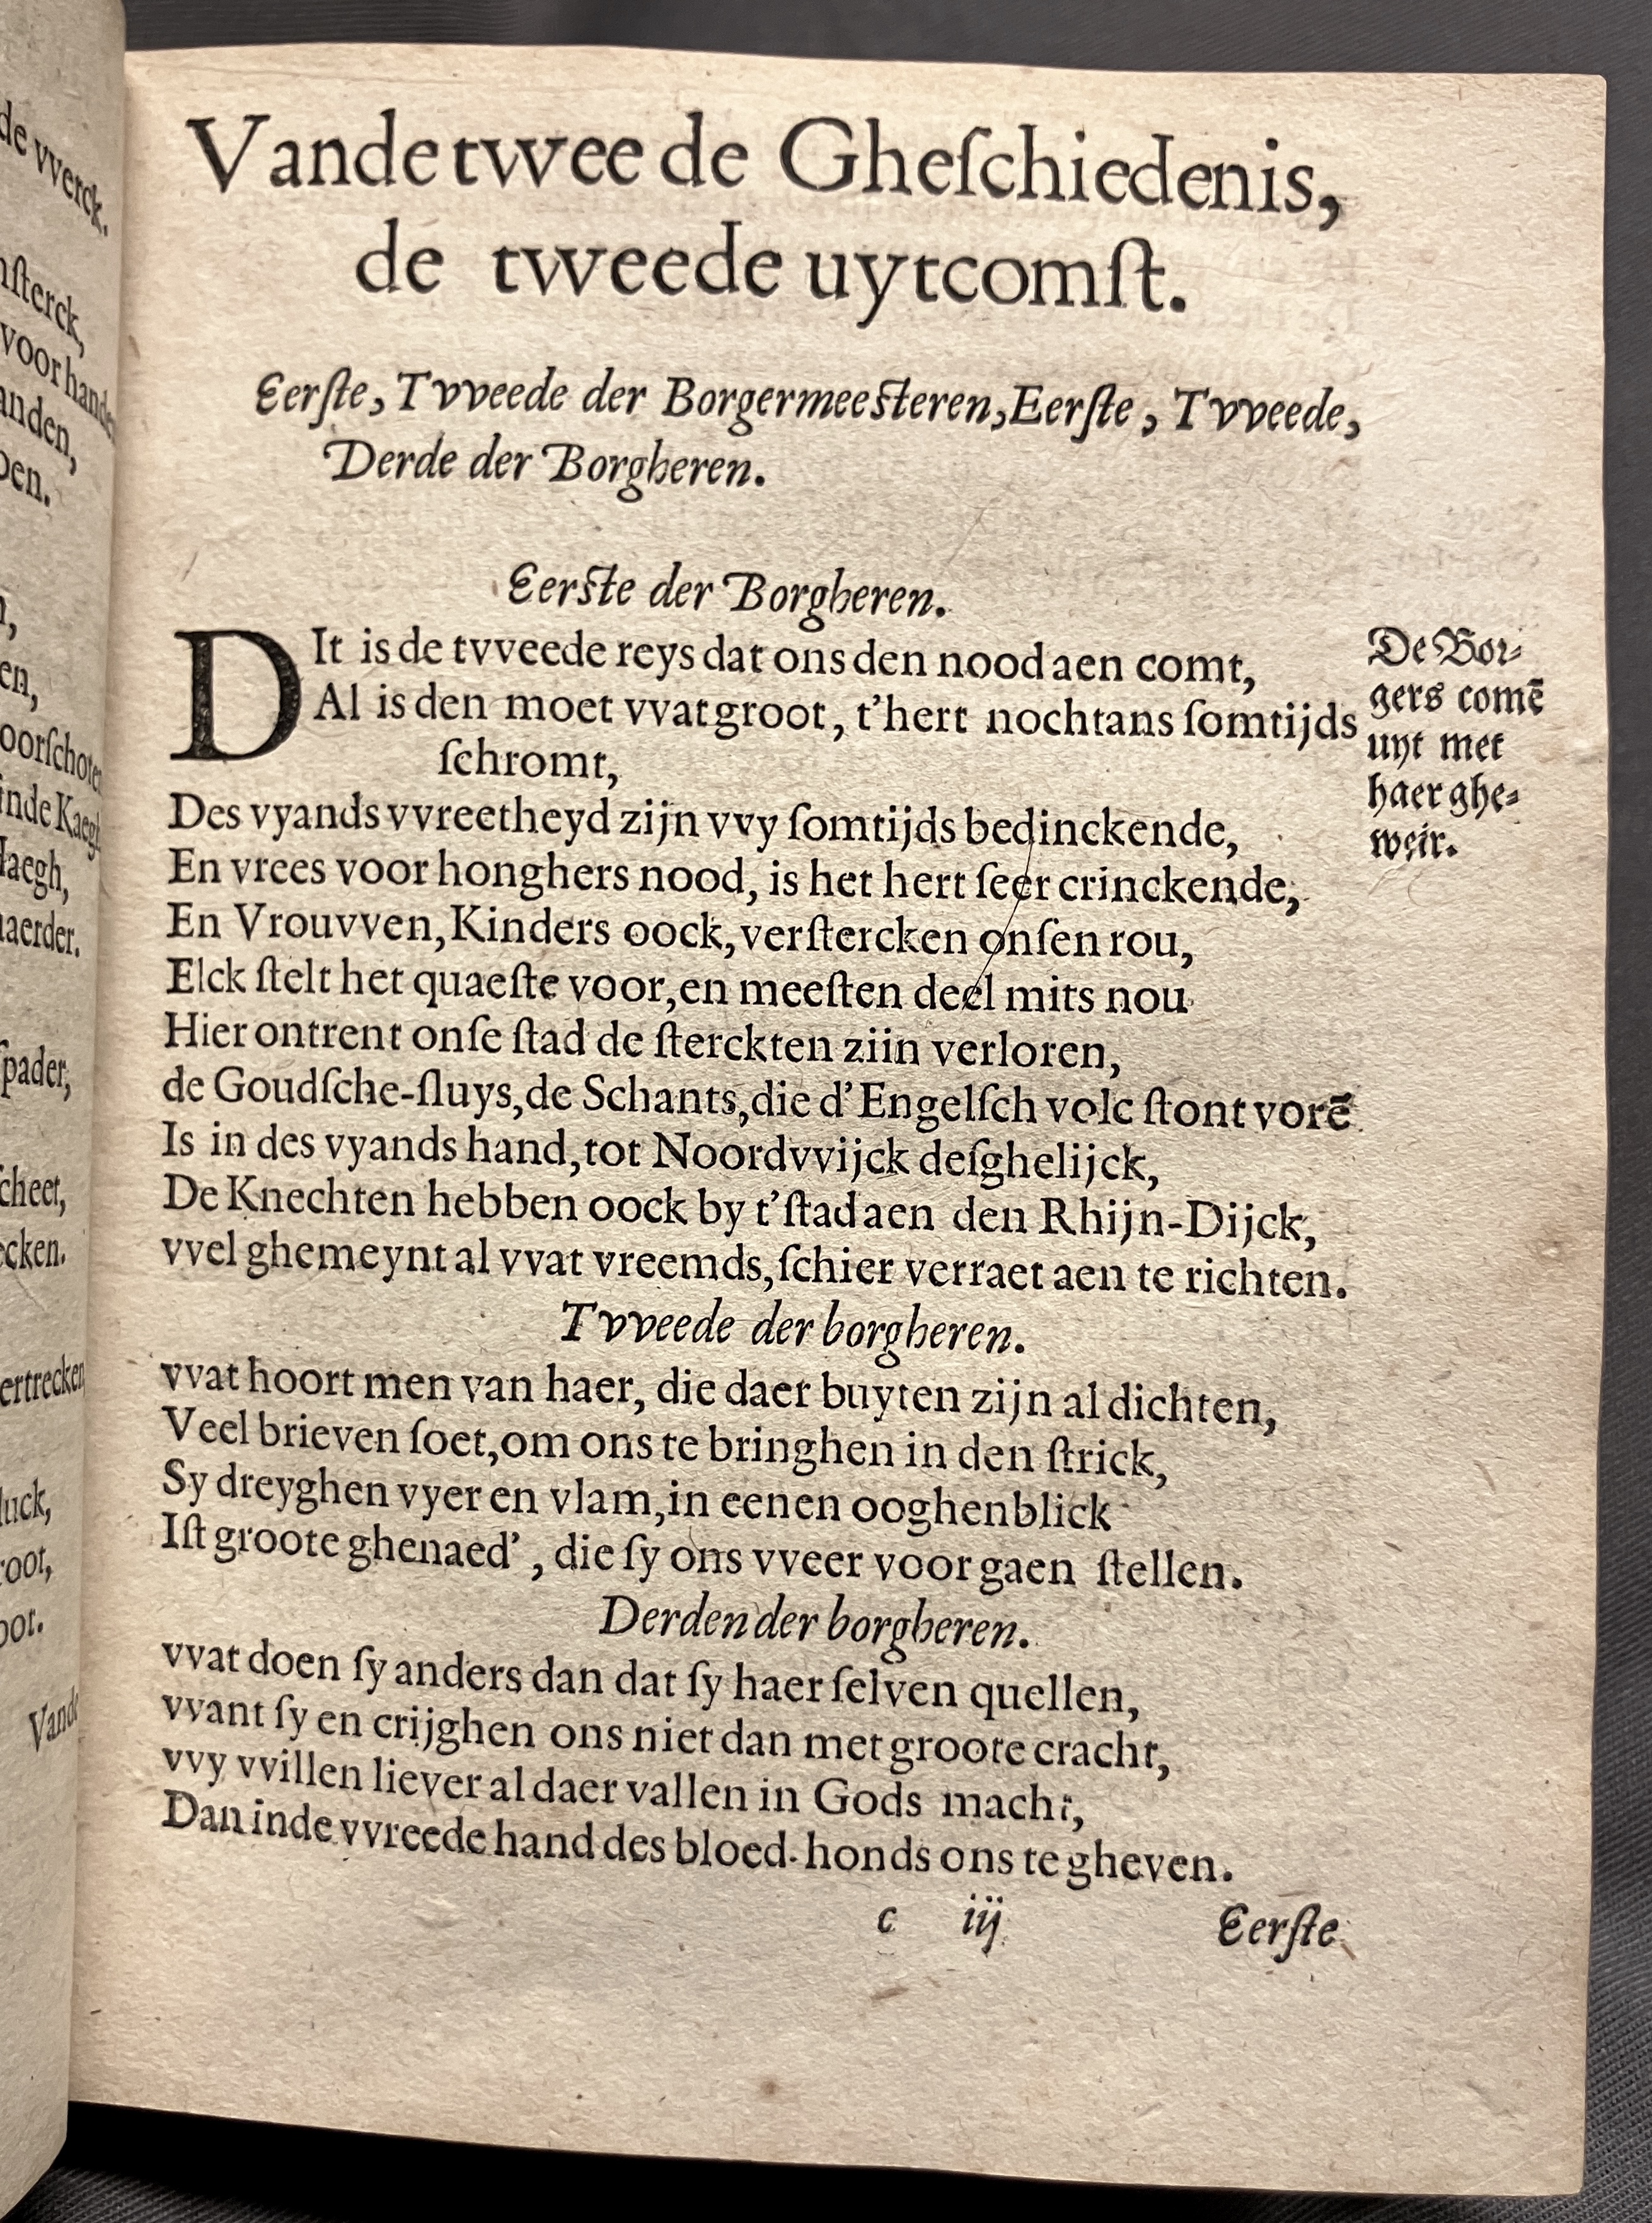 Vande twee de Gheſchiedenis,
de tweede uytcomſt.
Eerſte, Tvveede der Borgermeeſteren, Eerſte, Tvveede,
Derde der Borgheren.
Eerſte der Borgheren.
DIt is de tvveede reys dat ons den nood aen comt,
Al is den moet vvat groot, t'hert nochtans ſomtijds
ſchromt,
Des vyands vvreetheyd zijn vvy ſomtijds bedinckende,
En vrees voor honghers nood, is het hert ſeer crinckende,
En Vrouvven, Kinders oock, verſtercken onſen rou,
Elck ſtelt het quaeſte voor, en meeſten deel mits nou
Hier ontrent onſe ſtad de ſterckten ziin verloren,
de Goudſche-ſluys, de Schants, die d'Engelſch volc ſtont vorē
Is in des vyands hand, tot Noordvvijck deſghelijck,
De Knechten hebben oock by t'ſtad aen den Rhijn-Dijck,
vvel ghemeynt al vvat vreemds, ſchier verraet aen te richten.
Tvveede der borgheren.
vvat hoort men van haer, die daer buyten zijn al dichten,
Veel brieven ſoet, om ons te bringhen in den ſtrick,
Sy dreyghen vyer en vlam, in eenen ooghenblick
Iſt groote ghenaed', die ſy ons vveer voor gaen ſtellen.
Derden der borgheren.
vvat doen ſy anders dan dat ſy haer ſelven quellen,
vvant ſy en crijghen ons niet dan met groote cracht,
vvy vvillen liever al daer vallen in Gods macht,
Dan inde vvreede hand des bloed-honds ons te gheven.
c iij Eerſte
De Bor-
gers comē
uyt met
haer ghe-
weir.
de vverck.
nſterck,
voor handen
anden,
en,
oorſchoten
inde Kaegh
Haegh,
naerder.
ſpader,
ſcheet,
ecken.
ertrecken
luck,
root,
oot.
Vande